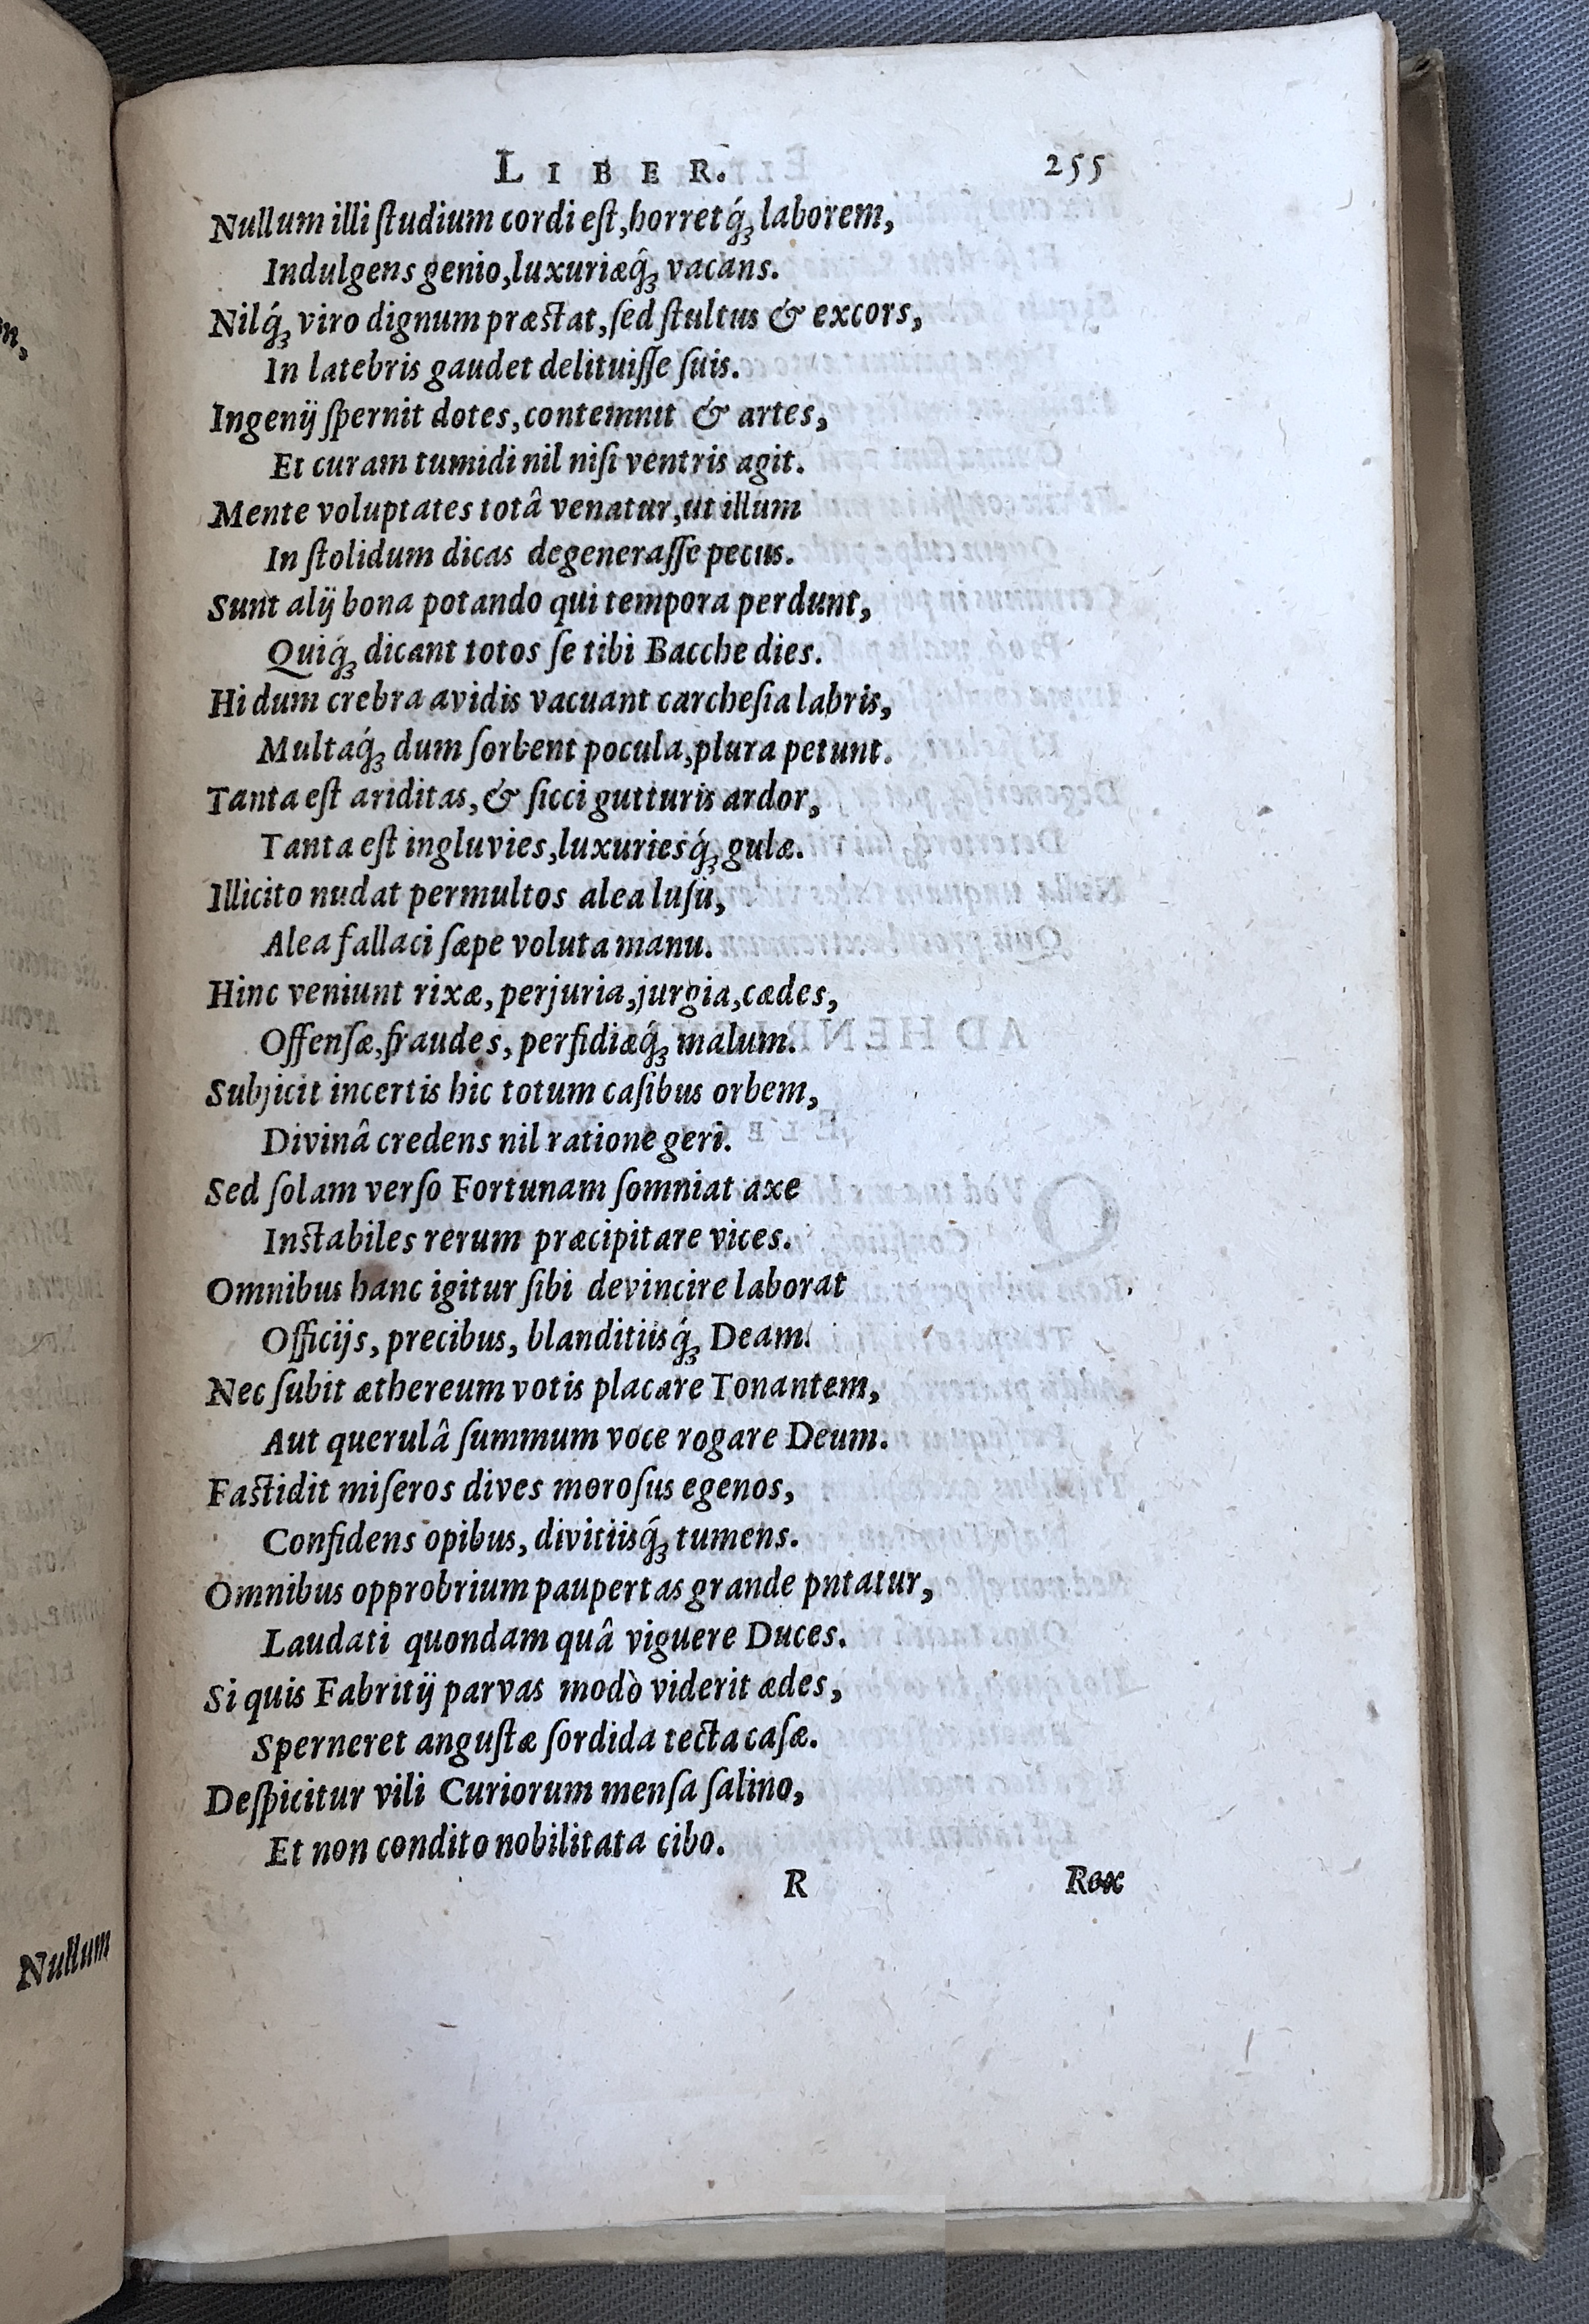 LIBER. 255
Nullum illi ſtudium cordi eſt, horretq́; laborem,
Indulgens genio, luxuriæq̂; vacans.
Nilq́; viro dignum præſtat, ſed ſtultus & excors,
In latebris gaudet delituiſſe ſuis.
Ingenij ſpernit dotes, contemnit & artes,
Et curam tumidi nil niſi ventris agit.
Mente voluptates totâ venatur, ut illum
In ſtolidum dicas degeneraſſe pecus.
Sunt alij bona potando qui tempora perdunt,
Quiq́; dicant totos ſe tibi Bacche dies.
Hi dum crebra avidis vacuant carcheſia labris,
Multaq́; dum ſorbent pocula, plura petunt.
Tanta eſt ariditas, & ſicci gutturis ardor,
Tanta eſt ingluvies, luxuriesq́; gulæ.
Illicito nudat permultos alea luſu,
Alea fallaci ſæpe voluta manu.
Hinc veniunt rixæ, perjuria, jurgia, cædes,
Offenſæ, fraudes, perfidiæq́; malum.
Subjicit incertis hic totum caſibus orbem,
Divinâ credens nil ratione geri.
Sed ſolam verſo Fortunam ſomniat axe
Inſtabiles rerum præcipitare vices.
Omnibus hanc igitur ſibi devincire laborat
Officijs, precibus, blanditiisq́; Deam.
Nec ſubit æthereum votis placare Tonantem,
Aut querulâ ſummum voce rogare Deum.
Faſtidit miſeros dives moroſus egenos,
Confidens opibus, divitiisq́; tumens.
Omnibus opprobrium paupertas grande pntatur,
Laudati quondam quâ viguere Duces.
Si quis Fabritij parvas modò viderit ædes,
Sperneret anguſtæ ſordida tecta caſæ.
Deſpicitur vili Curiorum menſa ſalino,
Et non condito nobilitata cibo.
R Rex
Nullum